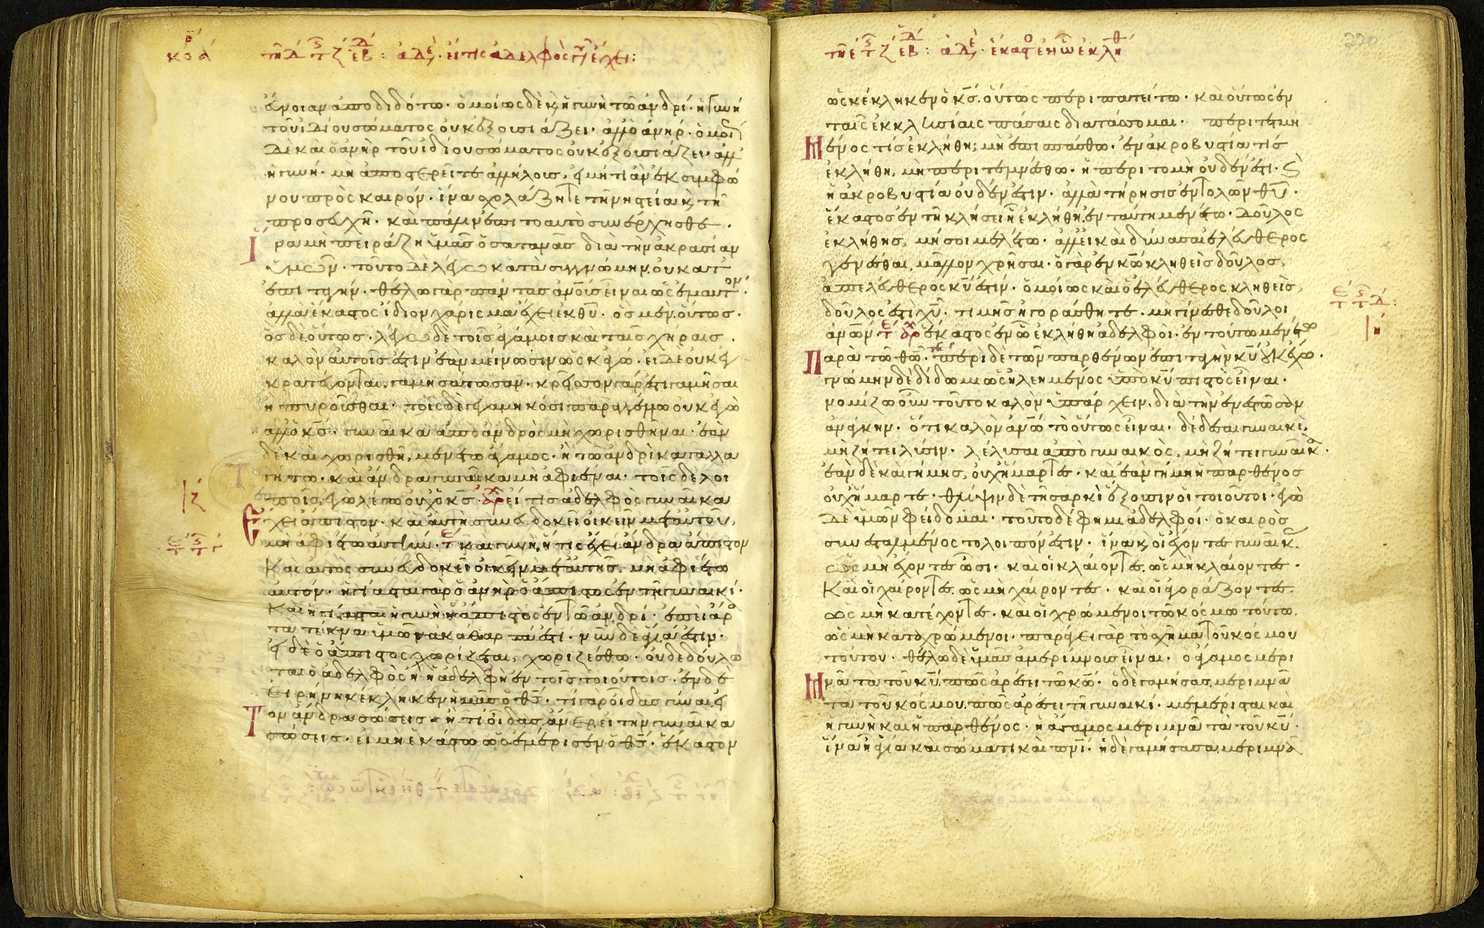 κοά τῇ δ τ ζ ἑβ: ἀδε· εἴ τις ἀδελφὸς γυν ἔχει:
εὔνοιαν ἀποδιδότω· ὁμοίως δὲ κ ἡ γυνὴ τῶ ἀνδρί· ἡ γυνὴ
τοῦ ἰδίου σώματος οὐκ ἐξουσιάζει· ἀλλὁ ἀνήρ· ὁμοί
δὲ καὶ ὁ ἀνὴρ τοῦ ἰδίου σώματος οὐκ ἐξουσιάζει· ἀλλ
ἡ γυνή· μὴ ἀποστερεῖτε ἀλλήλους, εἰ μή τι ἂν ἐκ συμφώ
νου πρὸς καιρόν· ἵνα σχολάζητε τῆ νηστεία κ τῆ
προσευχῆ· καὶ πάλιν ἐπὶ τὸ αὐτὸ συνέρχησθε·
ἵνα μὴ πειράζη ὑμᾶς ὁ σατανᾶς διὰ τὴν ἀκρασίαν
ὑμῶν· τοῦτο δὲ λέγω κατὰ συγγνώμην, οὐ κατ
ἐπιταγήν· θέλω γὰρ πάντας ἀνους εἶναι ὡς ἐμαυτόν·
ἀλλὰ ἕκαστος ἴδιον χάρισμα ἔχει ἐκ θυ· ὃς μὲν οὕτως·
ὃς δὲ οὕτως· λέγω δὲ τοῖς ἀγάμοις καὶ ταῖς χήραις·
καλὸν αὐτοῖς ἐστιν ἐὰν μείνωσιν ὡς κἀγώ· εἰ δὲ οὐκ ἐγ
κρατεύονται, γαμησάτωσαν· κρεῖσσον γάρ ἐστι γαμῆσαι
ἢ πυροῦσθαι· τοῖς δὲ γεγαμηκόσι παραγγέλλω οὐκ ἐγὼ
ἀλλὁ κς· γυναῖκα ἀπὸ ἀνδρὸς μὴ χωρισθῆναι· ἐὰν
δὲ καὶ χωρισθῆ, μενέτω ἄγαμος· ἢ τῶ ἀνδρὶ καταλλα
γήτω· καὶ ἄνδρα γυναῖκα μὴ ἀφιέναι· τοῖς δὲ λοι
ιζ
ποῖς, ἐγὼ λέγω οὐχ ὁ κς· εἴ τις ἀδελφὸς γυναῖκα
ἔχει ἄπιστον· καὶ αὐτὴ συνευδοκεῖ οἰκεῖν μεταὐτοῦ,
μὴ ἀφιέτω αὐτήν· καὶ γυνὴ ἥτις ἔχει ἄνδρα ἄπιστον
καὶ αὐτὸς συνευδοκεῖ οἰκεῖν μεταὐτῆς, μὴ ἀφιέτω
αὐτόν· ἡγίασται γὰρ ὁ ἀνὴρ ὁ ἄπιστος ἐν τῆ γυναικί·
καὶ ἡγίασται ἡ γυνὴ ἡ ἄπιστος ἐν τῶ ἀνδρί· ἐπεὶ ἄρ
τὰ τέκνα ὑμῶν ἀκάθαρτά ἐστι· νῦν δὲ ἅγιά ἐστιν·
εἰ δὲ ὁ ἄπιστος χωρίζεται, χωριζέσθω· οὐ δεδούλω
ται ὁ ἀδελφὸς ἢ ἡ ἀδελφὴ ἐν τοῖς τοιούτοις· ἐν δὲ
εἰρήνη κέκληκεν ἡμᾶς ὁ θς· τί γὰρ οἶδας γύναι εἰ
τὸν ἄνδρα σώσεις· ἢ τί οἶδας ἄνερ εἰ τὴν γυναῖκα
σώσεις· εἰ μὴ ἑκάστω ὡς ἐμέρισεν ὁ θς· ἕκαστον
τῇ ε τ ζ ἑβ: ἀδε· ἕκαστο ἐν ὧ ἐκλήθ
ὡς κέκληκεν ὁ κς, οὕτως περιπατείτω· καὶ οὕτως ἐν
ταῖς ἐκκλησίαις πάσαις διατάσσομαι· περιτετμη
μένος τίς ἐκλήθη; μὴ ἐπισπάσθω· ἐν ἀκροβυστία τίς
ἐκλήθη, μὴ περιτεμνέσθω· ἡ περιτομὴ οὐδέν ἐστι· κ
ἡ ἀκροβυστία οὐδέν ἐστιν· ἀλλὰ τήρησις ἐντολῶν θυ·
ἕκαστος ἐν τῆ κλήσει ἧ ἐκλήθη, ἐν ταύτη μενέτω· δοῦλος
ἐκλήθης, μή σοι μελέτω· ἀλλεἰ καὶ δύνασαι ἐλεύθερος
γενέσθαι, μᾶλλον χρῆσαι· ὁ γὰρ ἐν κω κληθεὶς δοῦλος,
ἀπελεύθερος κυ ἐστιν· ὁμοίως καὶ ὁ ἐλεύθερος κληθεὶς,
δοῦλός ἐστι χυ· τιμῆς ἠγοράσθητε· μὴ γίνεσθε δοῦλοι
ιη
ἀνων· ἕκαστος ἐν ὧ ἐκλήθη ἀδελφοί· ἐν τούτω μενέτω
παρὰ τῶ θω· περὶ δὲ τῶν παρθένων ἐπιταγὴν κυ οὐκ ἔχω·
γνώμην δὲ δίδωμι ὡς ἠλεημένος ὑπὸ κυ πιστὸς εἶναι·
νομίζω οὖν τοῦτο καλὸν ὑπάρχειν, διὰ τὴν ἐνεστῶσαν
ἀνάγκην· ὅτι καλὸν ἀνω τὸ οὕτως εἶναι· δέδεσαι γυναικί,
μὴ ζήτει λύσιν· λέλυσαι ἀπὸ γυναικός, μὴ ζήτει γυναῖκ·
ἐὰν δὲ καὶ γήμης, οὐχ ἥμαρτες· καὶ ἐὰν γήμη ἡ παρθένος
οὐχ ἥμαρτε· θλίψιν δὲ τῆ σαρκὶ ἕξουσιν οἱ τοιοῦτοι· ἐγὼ
δὲ ὑμῶν φείδομαι· τοῦτο δέ φημι ἀδελφοί· ὁ καιρὸς
συνεσταλμένος τὸ λοιπόν ἐστιν· ἵνα κ οἱ ἔχοντες γυναῖκ,
ὡς μὴ ἔχοντες ὦσι· καὶ οἱ κλαίοντες, ὡς μὴ κλαίοντες·
καὶ οἱ χαίροντες, ὡς μὴ χαίροντες· καὶ οἱ ἀγοράζοντες
ὡς μὴ κατέχοντες· καὶ οἱ χρώμενοι τῶ κόσμω τούτω,
ὡς μὴ καταχρώμενοι· παράγει γὰρ τὸ σχῆμα τοῦ κόσμου
τούτου· θέλω δὲ ὑμᾶς ἀμερίμνους εἶναι· ὁ ἄγαμος μερι
μνᾶ τὰ τοῦ κυ, πῶς ἀρέσει τῶ κω· ὁ δὲ γαμήσας μεριμνᾶ
τὰ τοῦ κόσμου, πῶς ἀρέσει τῆ γυναικί· μεμέρισται καὶ
ἡ γυνὴ καὶ ἡ παρθένος· ἡ ἄγαμος μεριμνᾶ τὰ τοῦ κυ·
ἵνα ἦ ἁγία καὶ σώματι καὶ πνι· ἡ δὲ γαμήσασα, μεριμνᾶ